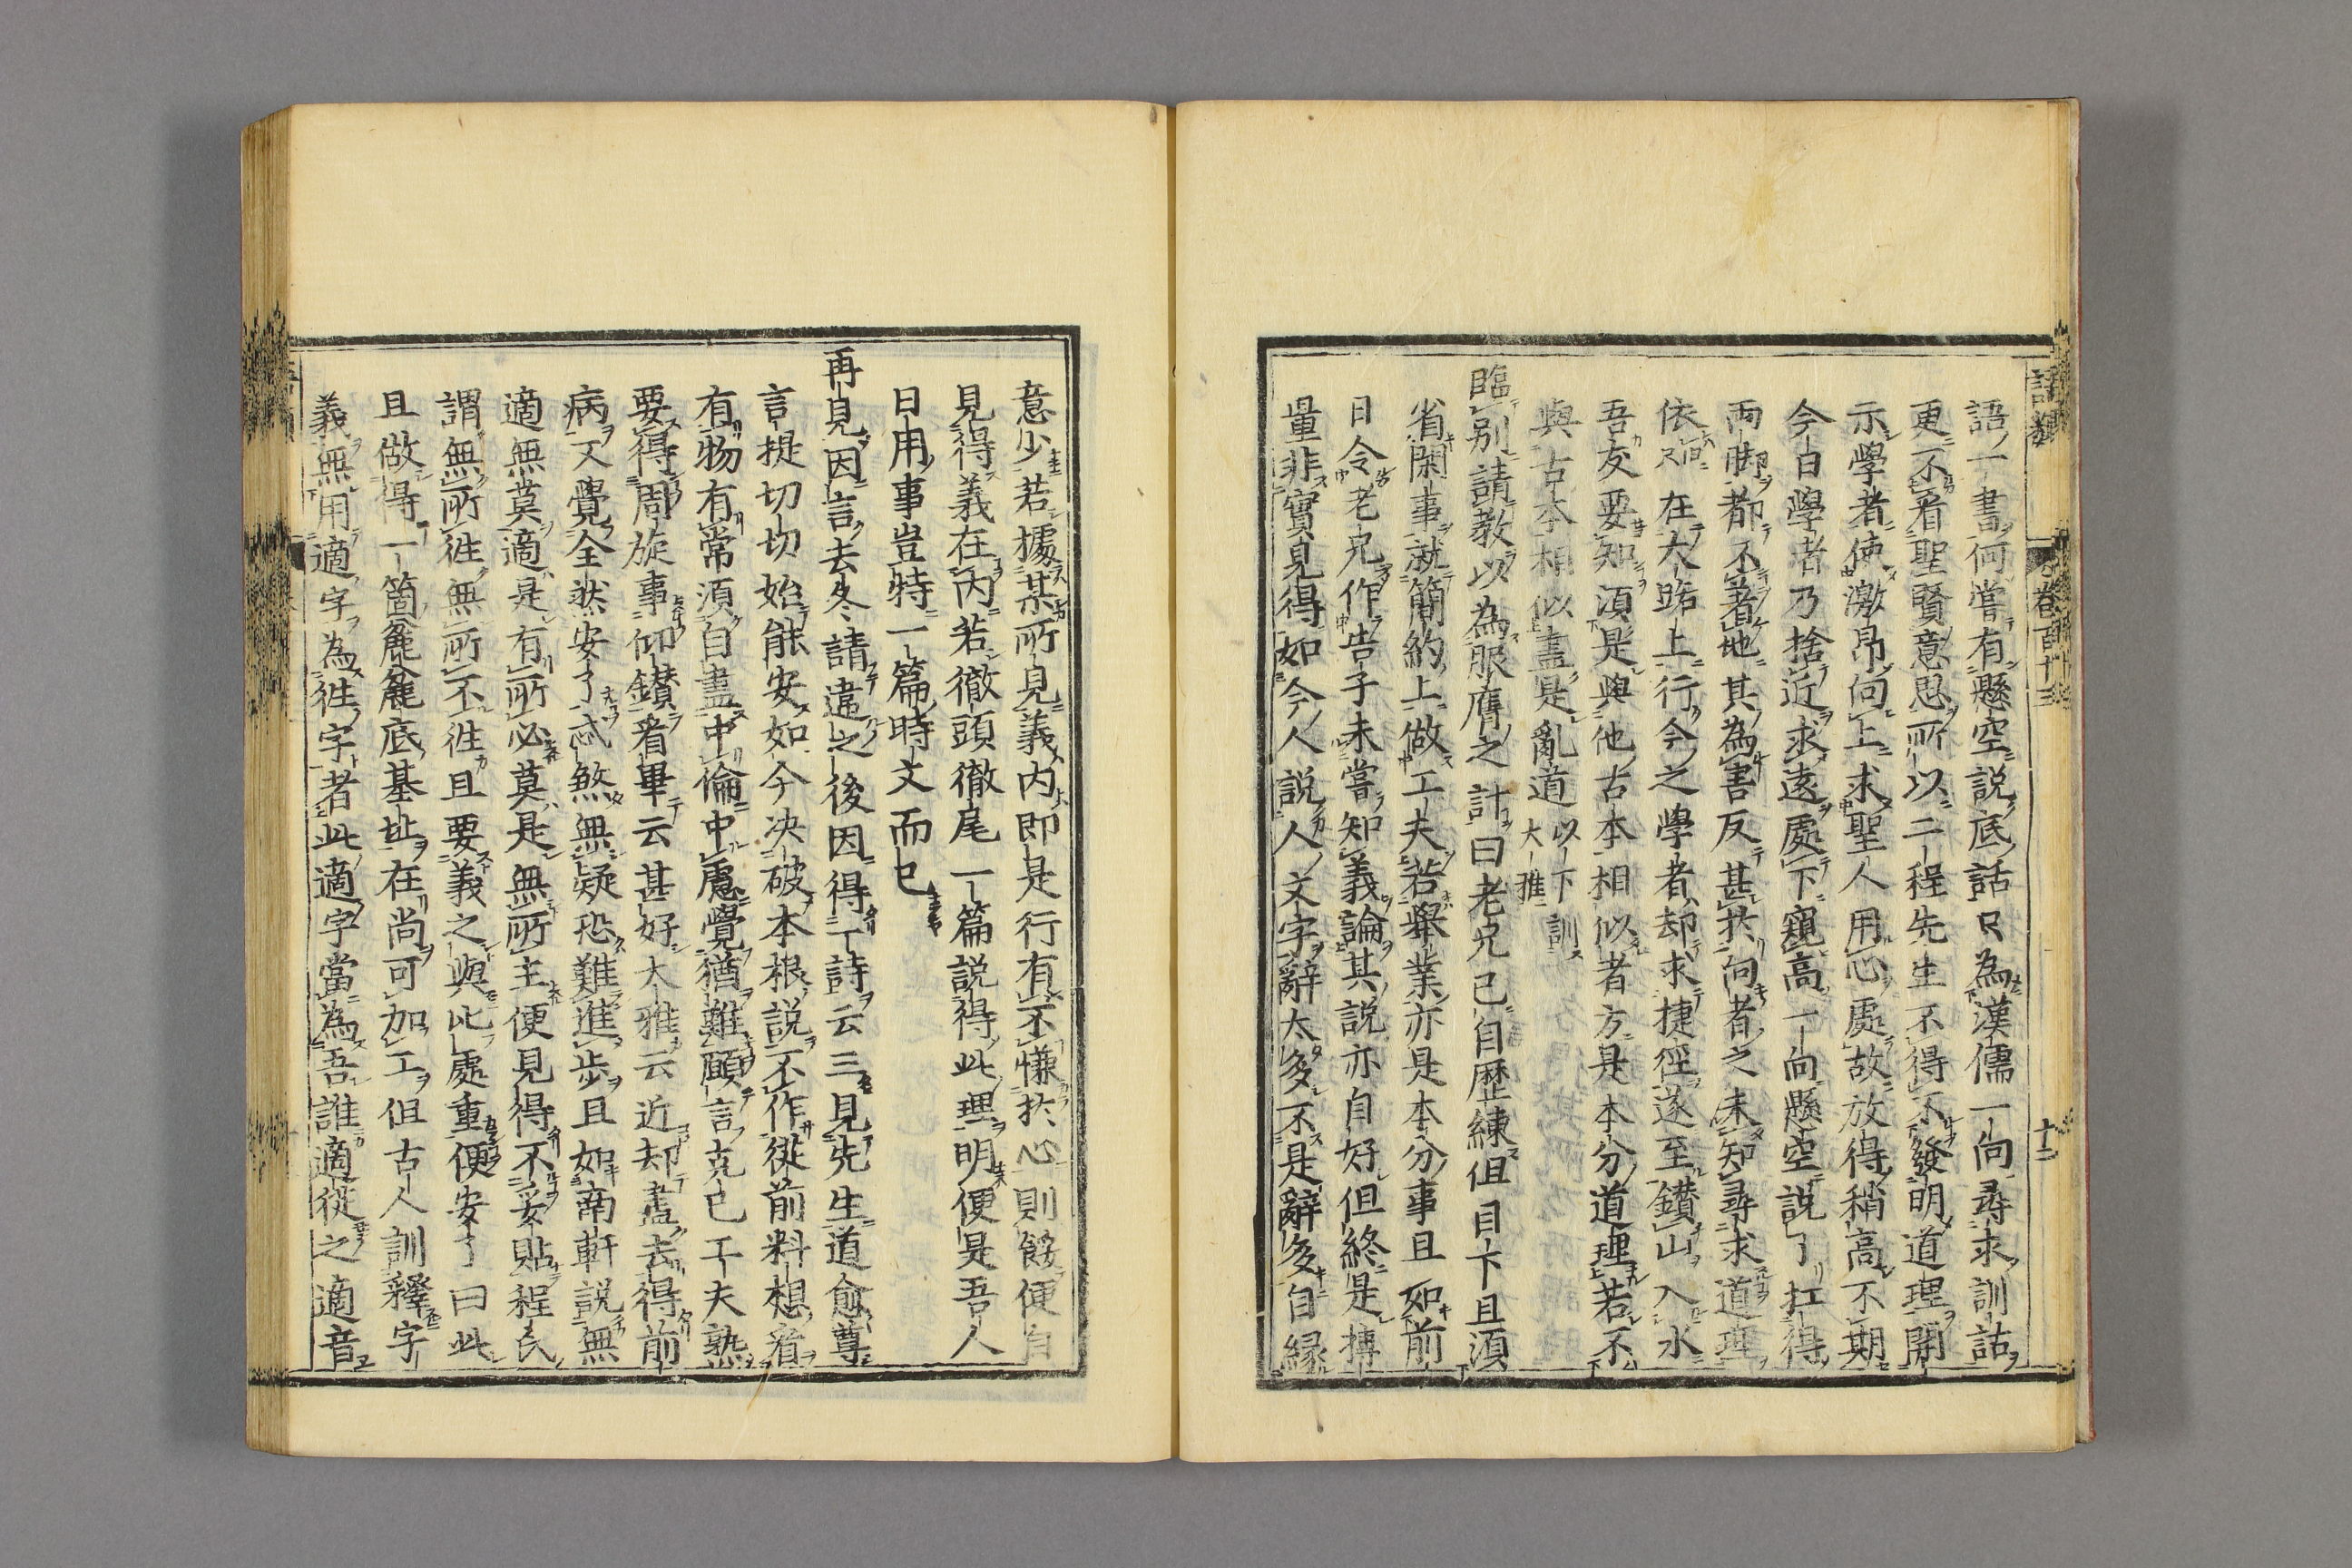 語類 卷百十三 十二
語一書何嘗有懸空説底話只為漢儒一向尋求訓詁
更不看聖賢意思所以二程先生不得不發明道理開
示學者使激昂向上求聖人用心處故放得稍高不期
今日學者乃捨近求遠處下窺高一向懸空説了扛得
兩脚都不著地其為害反甚扵向者之未知尋求道理
依舊在大路上行今之學者却求捷徑遂至鑚山入水
吾友要知須是與他古本相似者方是本分道理若不
與古本相似盡是亂道以下訓大雅
臨別請教以為服膺之計曰老兄已自歴練但目下且須
省閑事就簡約上做工夫若舉業亦是本分事且如前
日令老兄作告子未嘗知義論其説亦自好但終是摶
量非實見得如今人説人文字辭太多不是辭多自縁
意少若據某所見義内即是行有不慊扵心則餒便自
見得義在内若徹頭徹尾一篇説得此理明便是吾人
日用事豈特一篇時文而已
再見因言去冬請違之後因得一詩云三見先生道愈尊
言提切切始能安如今决破本根説不作從前料想看
有物有常須自盡中倫中慮覺猶難願言克己工夫熟
要得周旋事仰鑚看畢云甚好大雅云近却盡去得前
病又覺全然安了忒煞無疑恐難進歩且如南軒説無
適無莫適是有所必莫是無所主便見得不妥貼程氏
謂無所徃無所不徃且要義之與比處重便安了曰此
且做得一箇麄麄底基址在尚可加工但古人訓釋字
義無用適字為徃字者此適字當為吾誰適從之適音